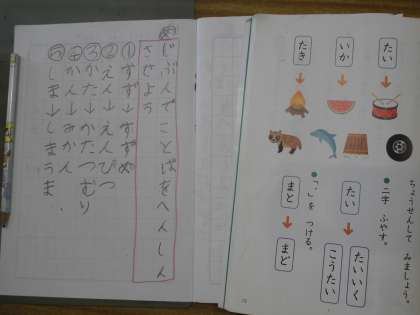 たい
いか
たき
ちょうせんして みましょう。
●二字 ふやす。
たい→たいいく
こうたい
●「゛」を つける。
まと→まど
め
じぶんでことばをへんしん
させよう
①すず→すずめ
②えん→えんぴつ
③かた→かたつむり
④かん→みかん
⑤しま→しまうま.